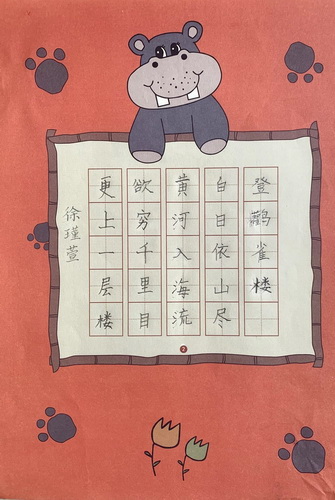 登鹳雀楼
白日依山尽
黄河入海流
欲穷千里目
更上一层楼
徐瑾萱
2